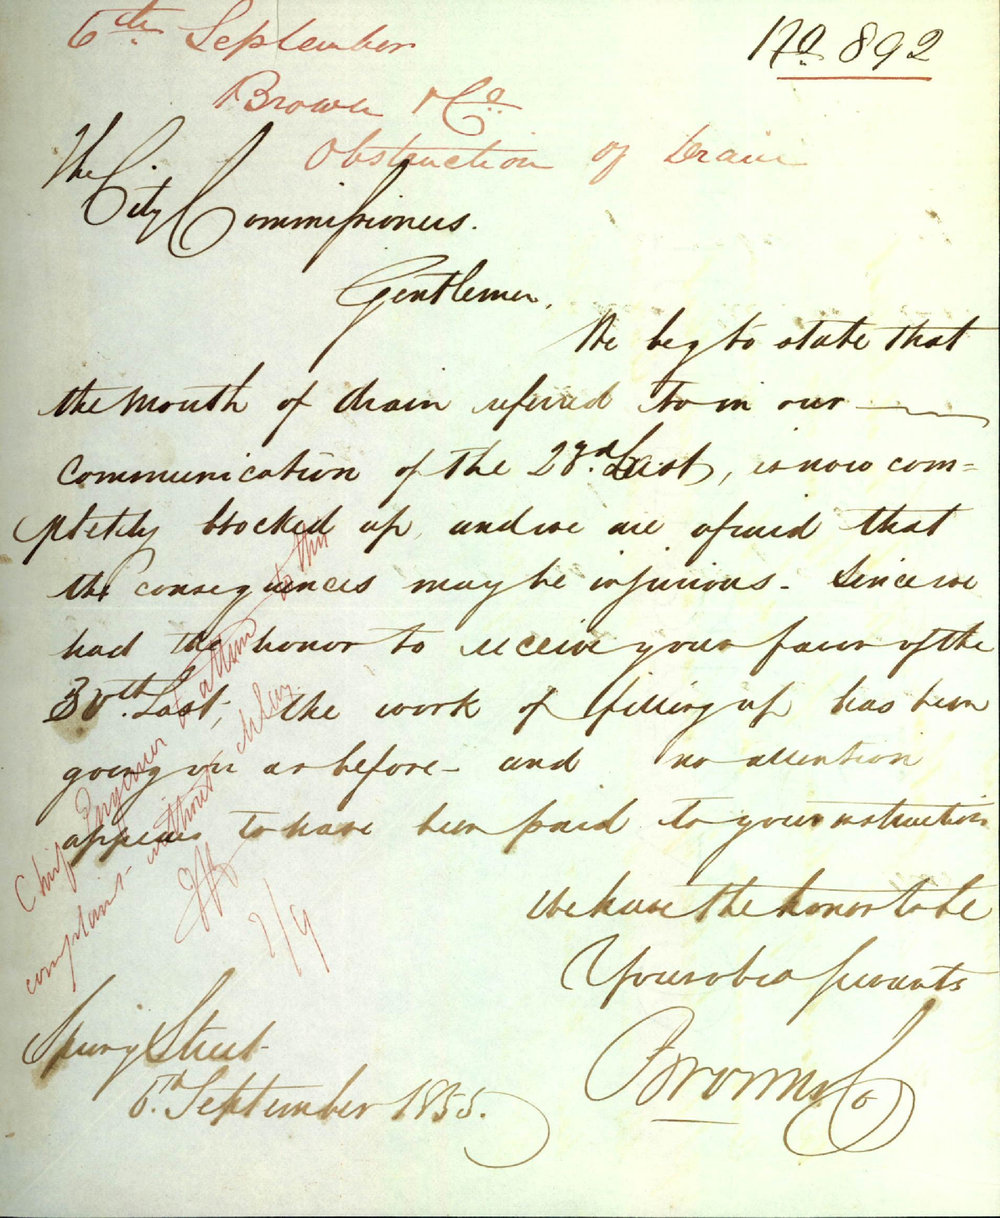 6th September
No 892
Brown & Co
Obstruction of Drain
The
City Commissioners.
Gentlemen,
We beg to state that
the mouth of drain referred to in our
communication of the 28th Last, is now com=
pletely blocked up, and we are afraid that
the consequences may be injurious - Since we
had the honor to receive your favor of the
30th Last, the work of filling up has been
going on as before - and no attention
appears to have been paid to your instructions
We have the honor to be
Your obed servants
Brown & Co
Spring Street
6th September 1855.
Chief Engineer to attend to this
complaint - without delay
7/9